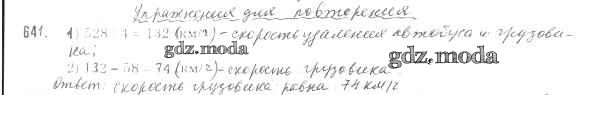 Упражнения для повторения
641. 1) 528 : 4 = 132 (км/ч) - скорость удаления автобуса и грузови-
ка;
gdz.moda
gdz.moda
2) 132 - 58 = 74 (км/ч) - скорость грузовика.
Ответ: скорость грузовика равна 74 км/ч